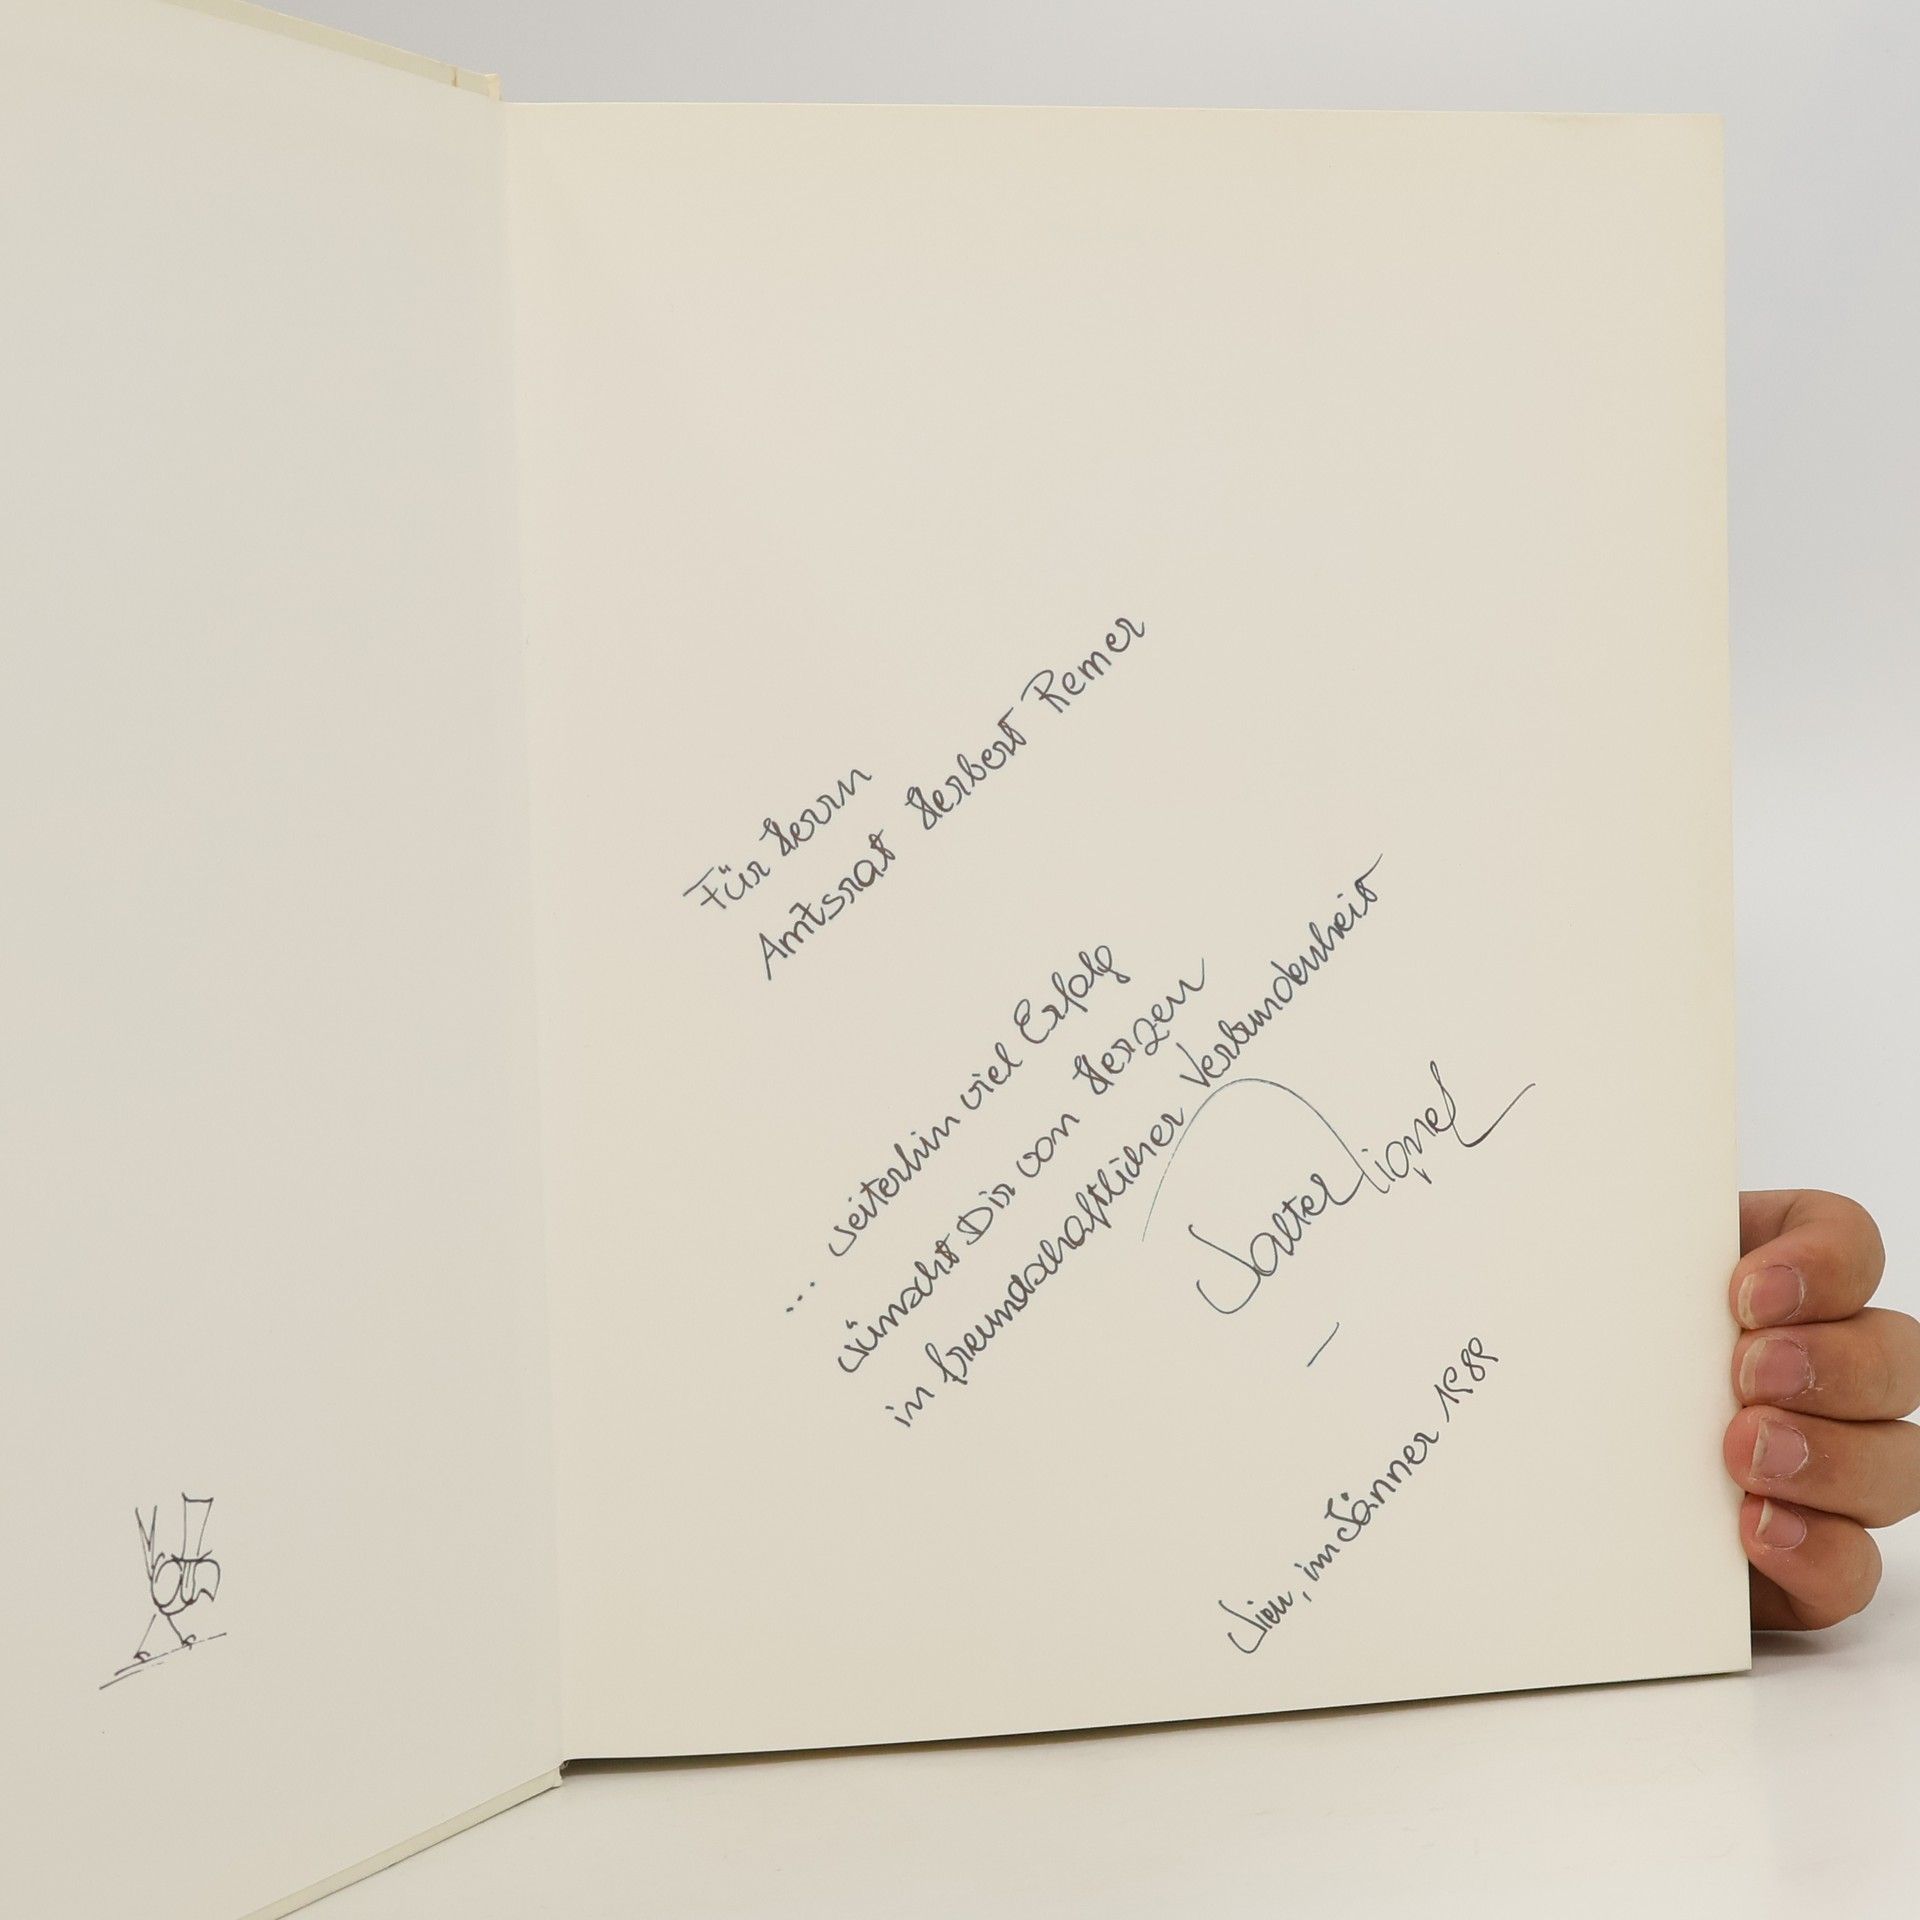 Für Herrn
Amtsrat Herbert Remer
... weiterhin viel Erfolg
wünscht Dir von Herzen
in freundschaftlicher Verbundenheit
Walter
Wien, im Jänner 1989